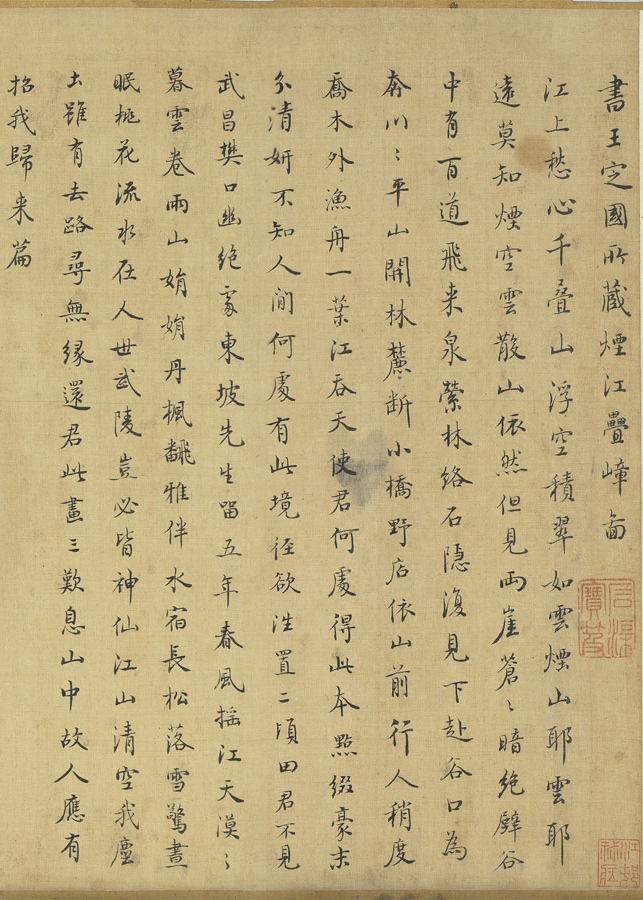 書王定國所蔵煙江疊嶂啚
江上愁心千叠山浮空積翠如雲煙山耶雲耶
遠莫知煙空雲散山依然但見兩崖蒼〻暗絕壁谷
中有百道飛来泉縈林絡石隱復見下赴谷口為
奔川〻平山開林麓断小橋野店依山前行人稍度
喬木外漁舟一葉江吞天使君何處得此本點綴豪末
分清妍不知人間何處有此境徑欲往置二頃田君不見
武昌樊口幽絕處東坡先生留五年春風摇江天漠〻
暮雲卷雨山娟娟丹楓翻雅伴水宿長松落雪驚晝
眠桃花流水在人世武陵豈必皆神仙江山清空我塵
土雖有去路尋無緣還君此畫三歎息山中故人應有
招我歸来篇
石渠寶笈